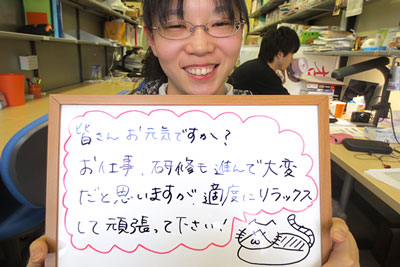 皆さんお元気ですか？
お仕事、研修も進んで大変
だと思いますが、適度にリラックス
して頑張って下さい！